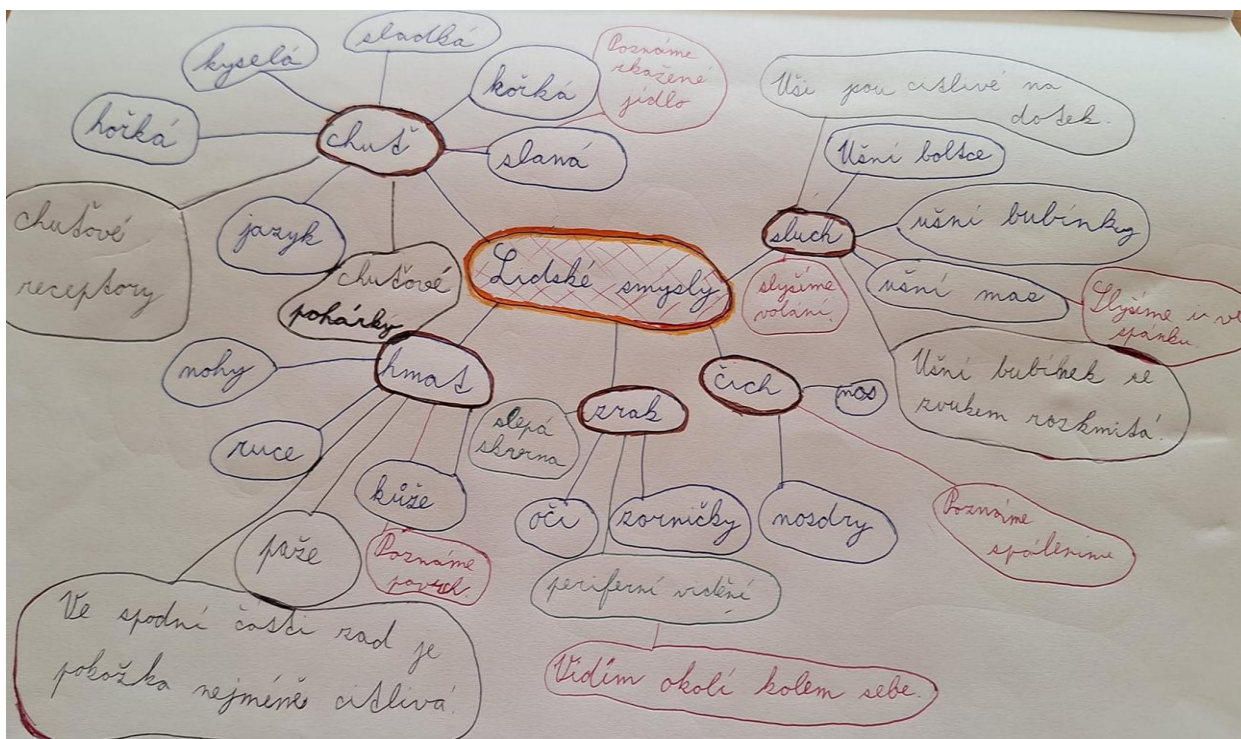 kyselá
sladká
kořká
Poznáme
zkažené
jídlo
hořká
chuť
slaná
jazyk
chuťové
receptory
chuťové
pohárky
Lidské smysly
Uši jsou citlivé na
dotek.
Ušní boltce
sluch
ušní bubínky
ušní maz
slyšíme
volání.
Slyšíme i ve
spánku.
Ušní bubínek se
zvukem rozkmitá.
hmat
nohy
ruce
paže
kůže
Poznáme
povrch.
Ve spodní části zad je
pokožka nejméně citlivá.
zrak
slepá
skvrna
oči
zorničky
periferní vidění
Vidím okolí kolem sebe.
čich
nos
nosdry
Poznáme